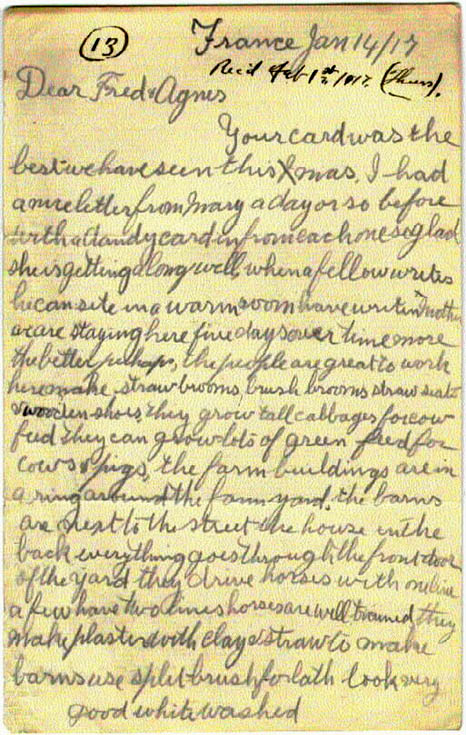 (13)
France Jan 14/17
Rec'd Feb 1st 1917. (Thurs).
Dear Fred & Agnes
Your card was the
best we have seen this Xmas, I had
a nice letter from Mary a day or so before
with a dandy card in from each one so glad
she is getting along well, when a fellow writes
he can site in a warm room have writen Mother
we are staying here five days over time more
the better perhaps, the people are great to work
here make straw brooms, brush brooms straw seats
& wooden shoes, they grow tall cabbages for cow
feed they can grow lots of green feed for
cows & pigs, the farm buildings are in
a ring around the farm yard. the barns
are next to the street the house in the
back everything goes through the front door
of the yard they drive horses with one line
a few have two lines horses are well trained they
make plaster with clay & straw to make
barns use split brush for lath look very
good white washed